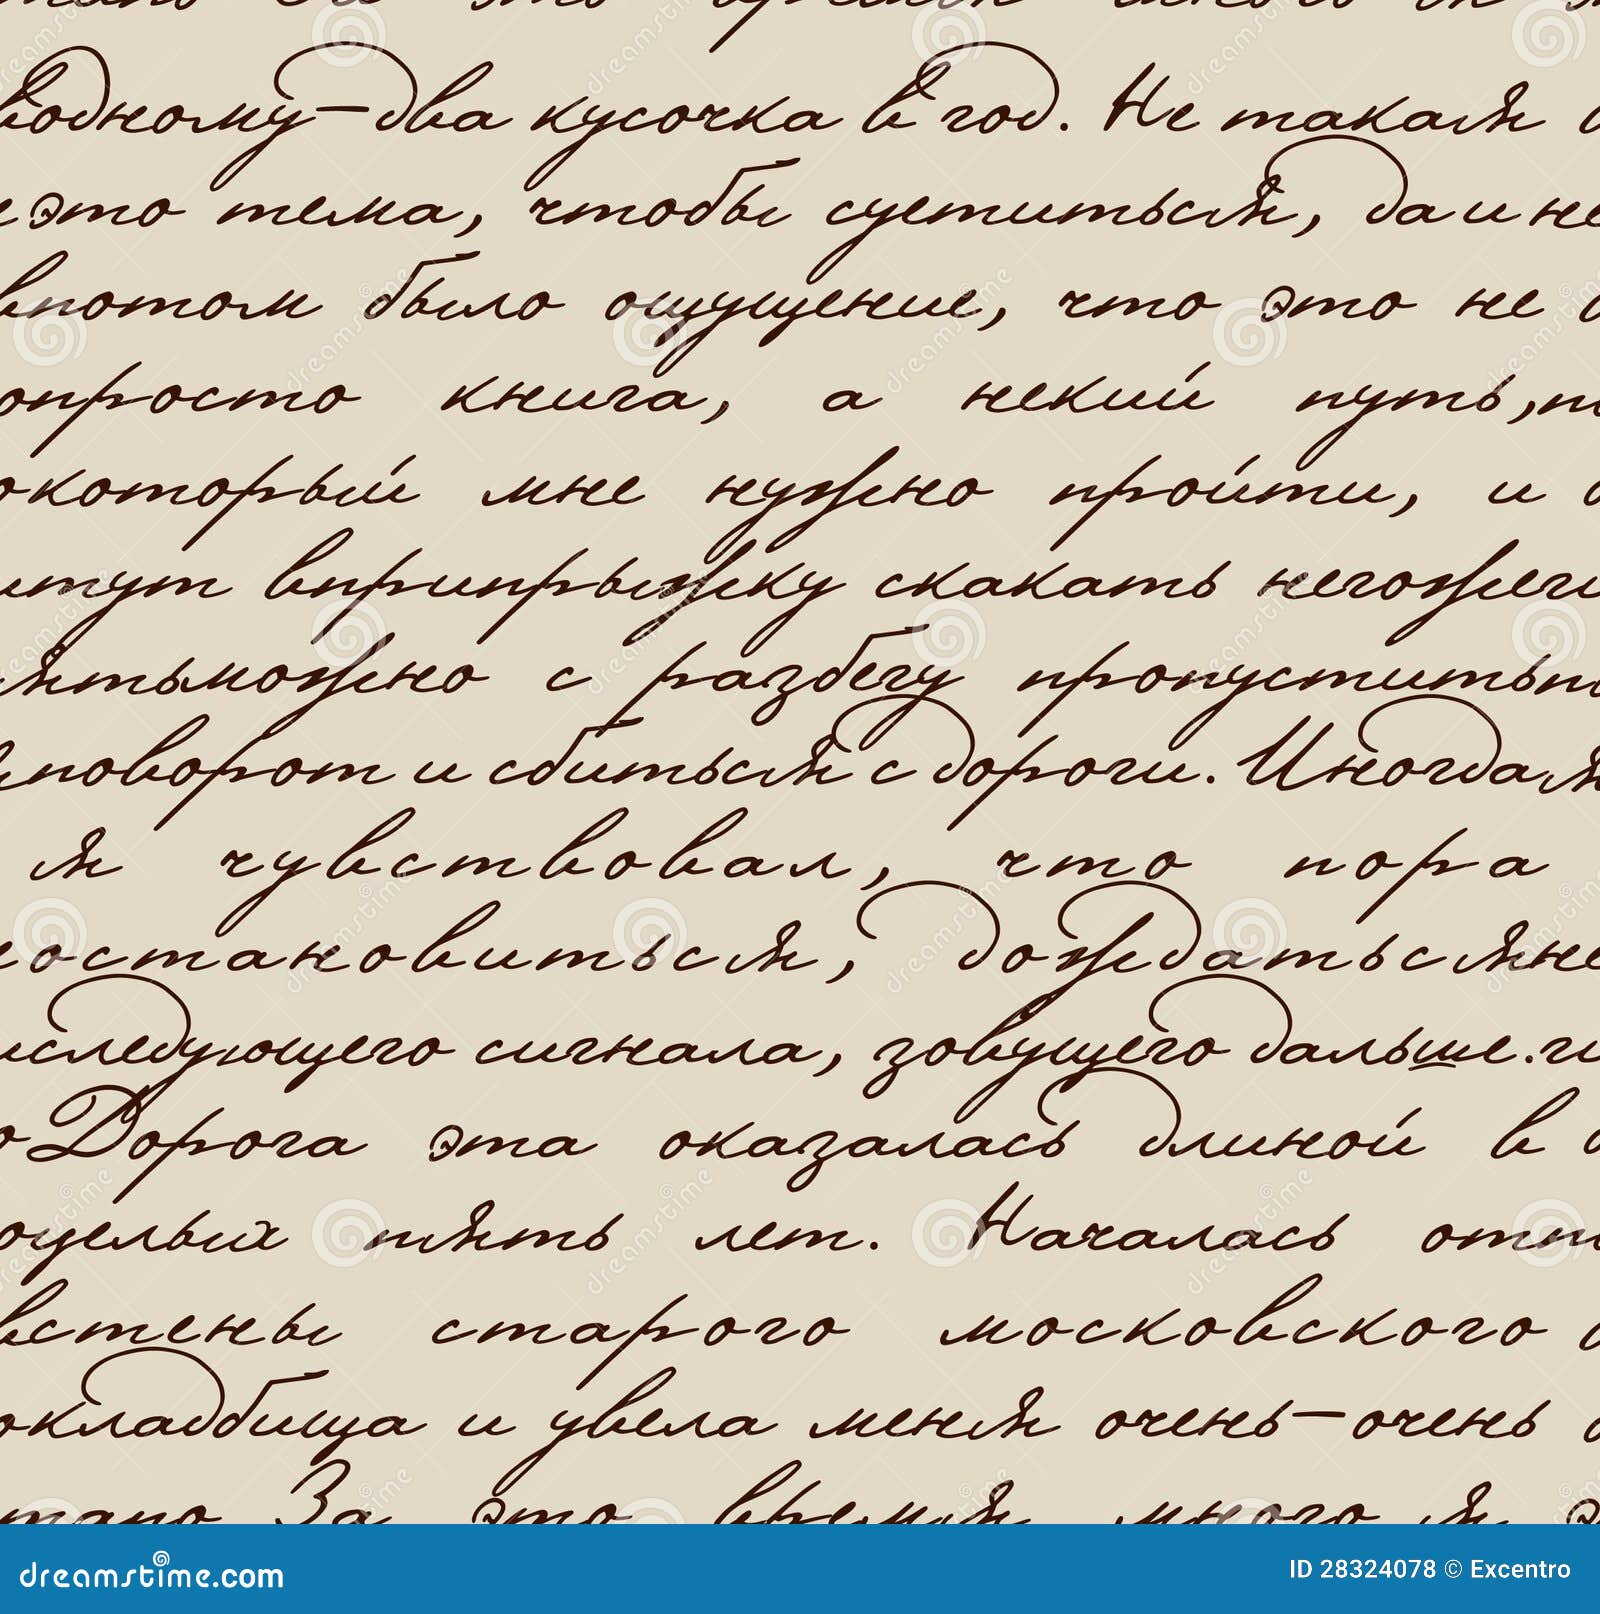 водному-два кусочка в год. Не такая
это тема, чтобы суетиться, да и не
потом было ощущение, что это не
просто книга, а некий путь,
который мне нужно пройти, и
тут вприпрыжку скакать негоже
можно с разбегу пропустить
поворот и сбиться с дороги. Иногда
я чувствовал, что пора
остановиться, дождаться
следующего сигнала, зовущего дальше.
Дорога эта оказалась длиной в
целых пять лет. Началась от
стены старого московского
кладбища и увела меня очень-очень
За это время много я
dreamstime.com
ID 28324078 © Excentro